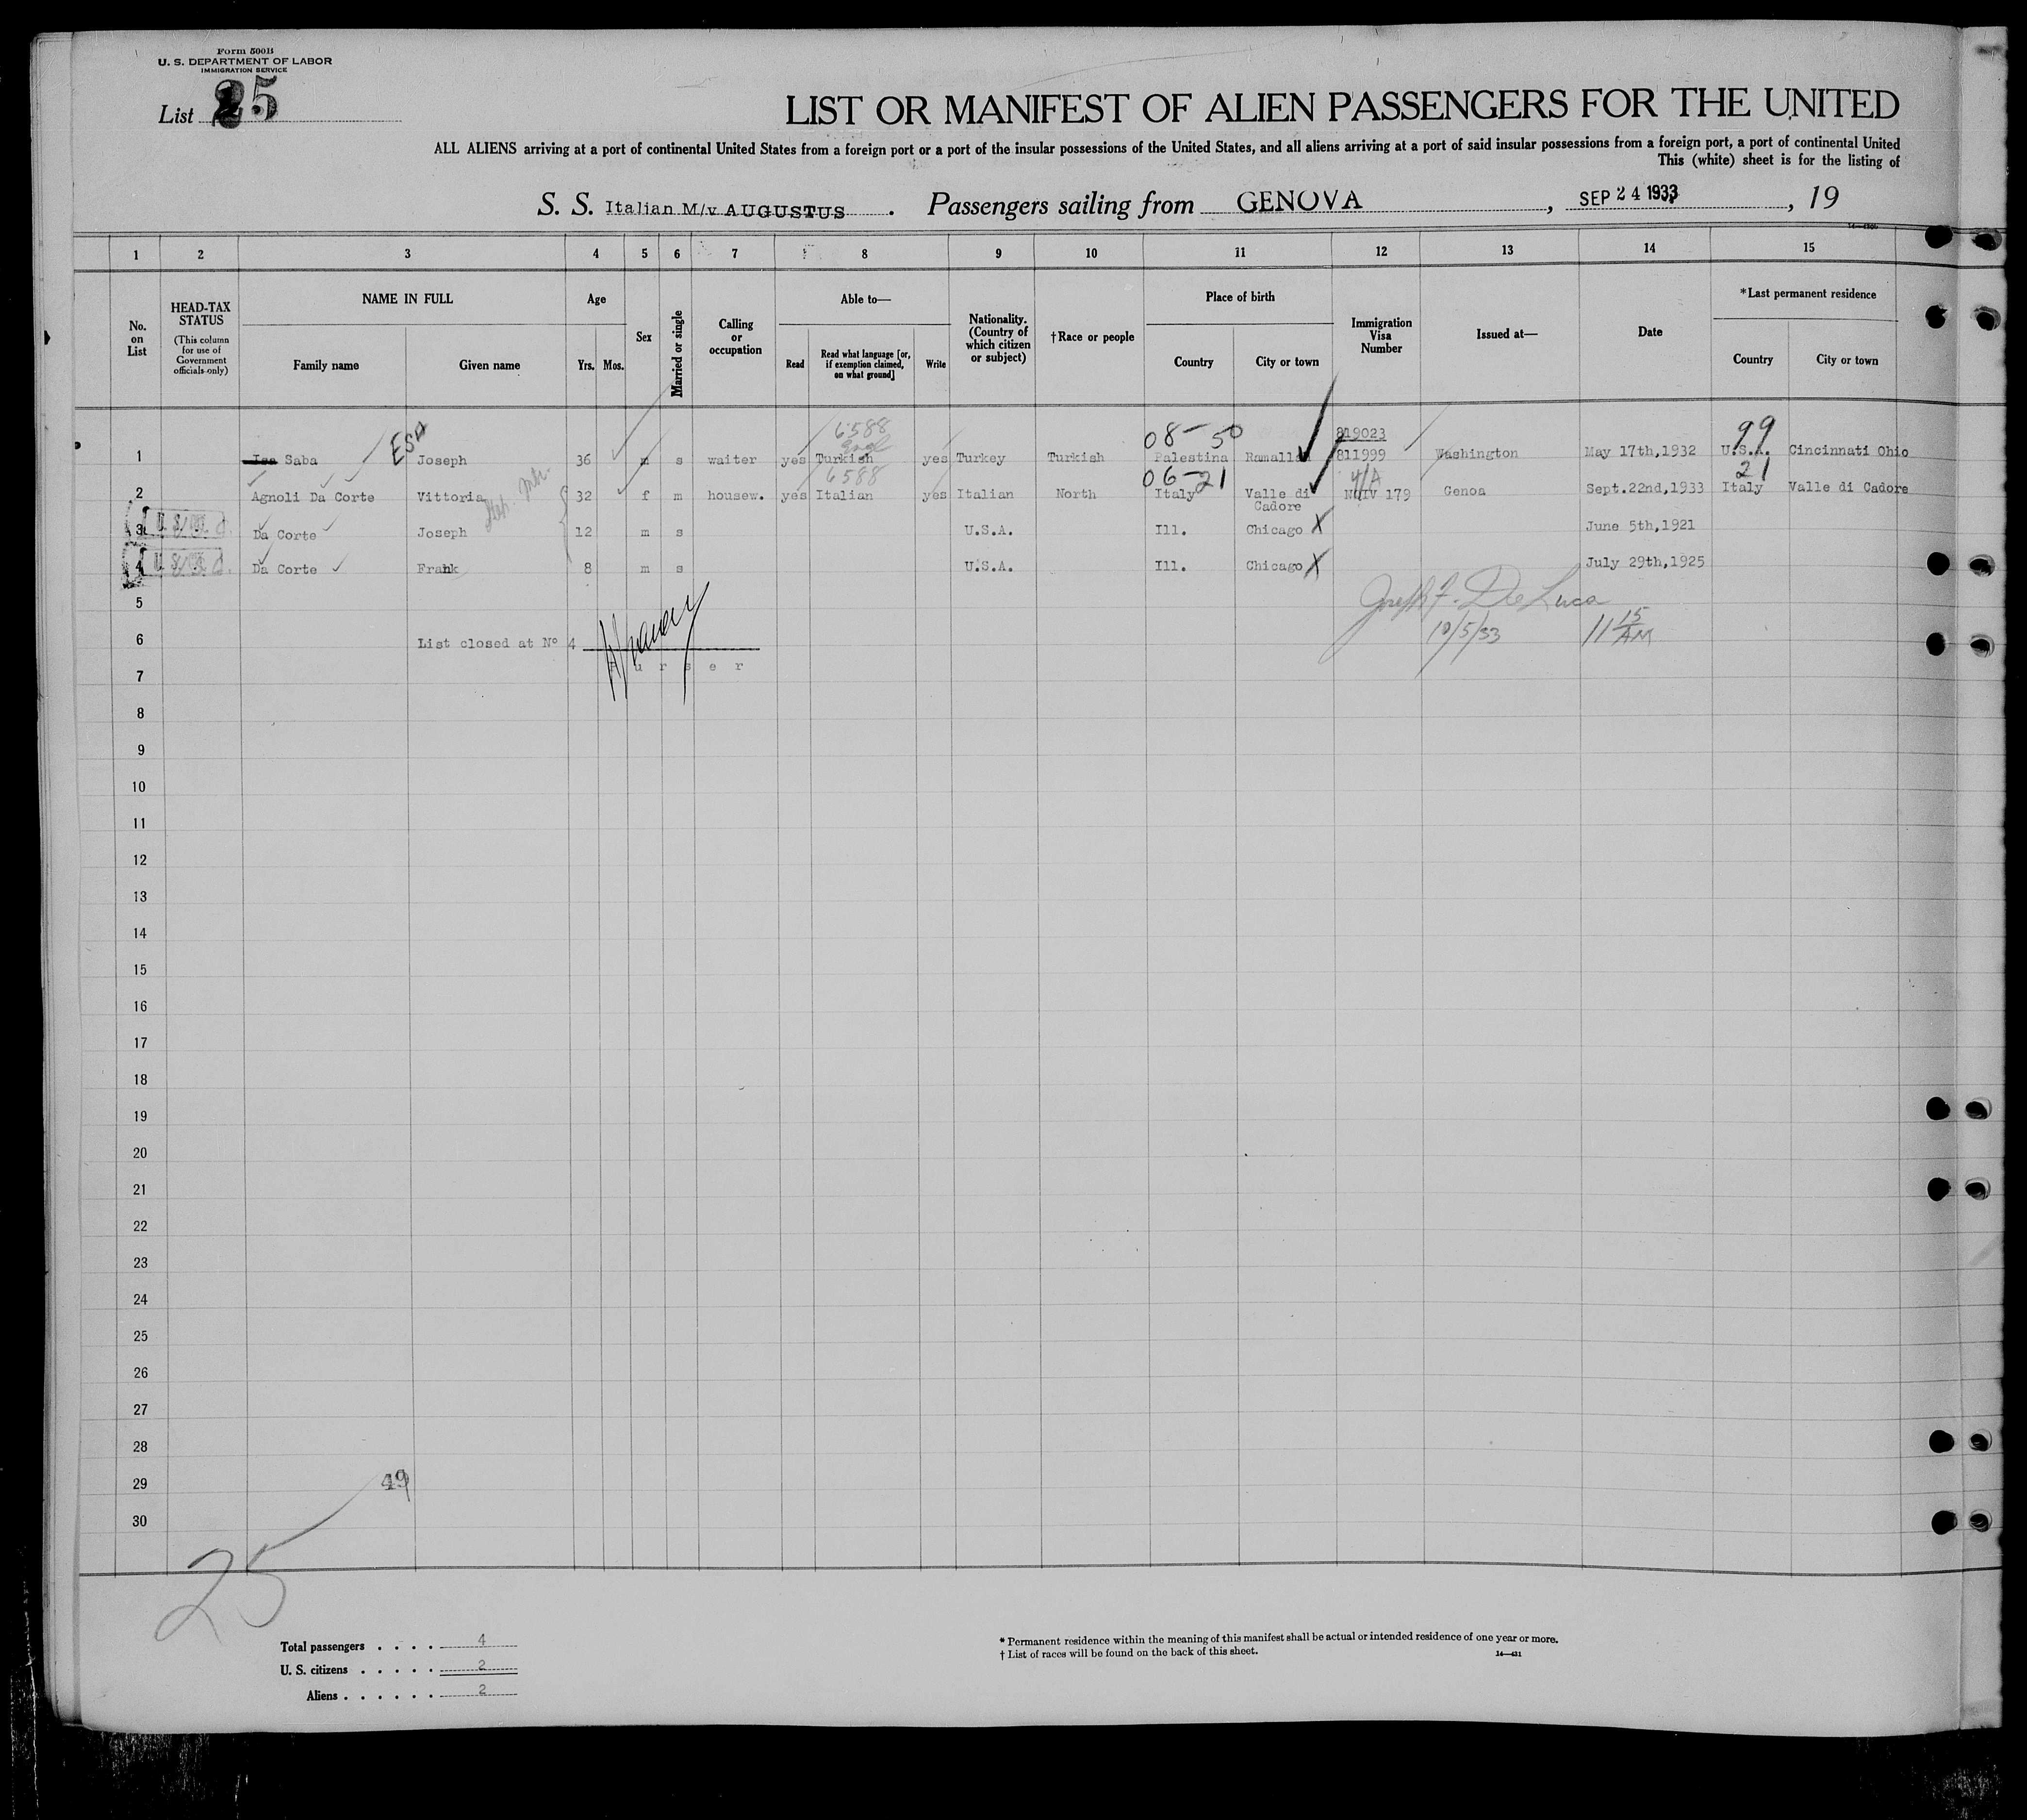 Form 500B
U. S. DEPARTMENT OF LABOR
IMMIGRATION SERVICE
List 25
LIST OR MANIFEST OF ALIEN PASSENGERS FOR THE UNITED
ALL ALIENS arriving at a port of continental United States from a foreign port or a port of the insular possessions of the United States, and all aliens arriving at a port of said insular possessions from a foreign port, a port of continental United
This (white) sheet is for the listing of
S. S. Italian M/v AUGUSTUS . Passengers sailing from GENOVA , SEP 24 1933 , 19
1 2 3 4 5 6 7 8 9 10 11 12 13 14 15
No. on List
HEAD-TAX STATUS (This column for use of Government officials only)
NAME IN FULL Family name Given name
Age Yrs. Mos.
Sex
Married or single
Calling or occupation
Able to— Read Read what language [or, if exemption claimed, on what ground] Write
Nationality. (Country of which citizen or subject)
†Race or people
Place of birth Country City or town
Immigration Visa Number
Issued at—
Date
*Last permanent residence Country City or town
6588 08-50 819023 99
1 Isa Saba ESA Joseph 36 m s waiter yes Turkish yes Turkey Turkish Palestina Ramallah 811999 Washington May 17th,1932 U.S.A. Cincinnati Ohio
6588 06-21 21
2 Agnoli Da Corte Vittoria 32 f m housew. yes Italian yes Italian North Italy Valle di Cadore NQIV 179 Genoa Sept.22nd,1933 Italy Valle di Cadore
3 Da Corte Joseph 12 m s U.S.A. Ill. Chicago X June 5th,1921
4 Da Corte Frank 8 m s U.S.A. Ill. Chicago X July 29th,1925
5 Joseph F. De Luca
6 List closed at Nº 4 10/5/33 11 15 AM
Purser
7
8
9
10
11
12
13
14
15
16
17
18
19
20
21
22
23
24
25
26
27
28
29 49
30
25
Total passengers . . . . 4
U. S. citizens . . . . . 2
Aliens . . . . . . 2
* Permanent residence within the meaning of this manifest shall be actual or intended residence of one year or more.
† List of races will be found on the back of this sheet.
14—431